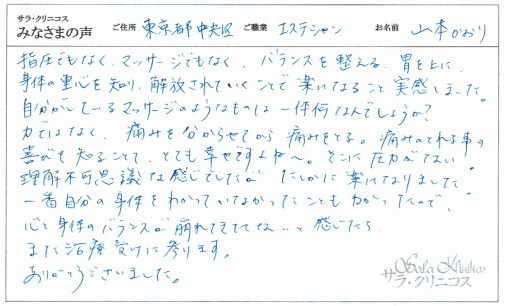 サラ・クリニコス
みなさまの声 ご住所 東京都中央区 ご職業 エステシャン お名前 山本かおり
指圧でもなく、マッサージでもなく、バランスを整える、胃を上に、
身体の重心を知り、解放されていくことで楽になること実感しました。
自分がしているマッサージのようなものは一体何なんでしょうか?
力ではなく、痛みを分からせてから痛みをとる。痛みのとれる事の
喜びを知ることで、とても幸せですよね~。そこに圧力がない
理解不可思議な感じでしたが たしかに楽になりました。
一番自分の身体をわかっていなかったこともわかったので、
心と身体のバランスが崩れてきてな..、と感じたら
また治療受けに参ります。
ありがとうございました。
Sala Klinikos
サラ・クリニコス